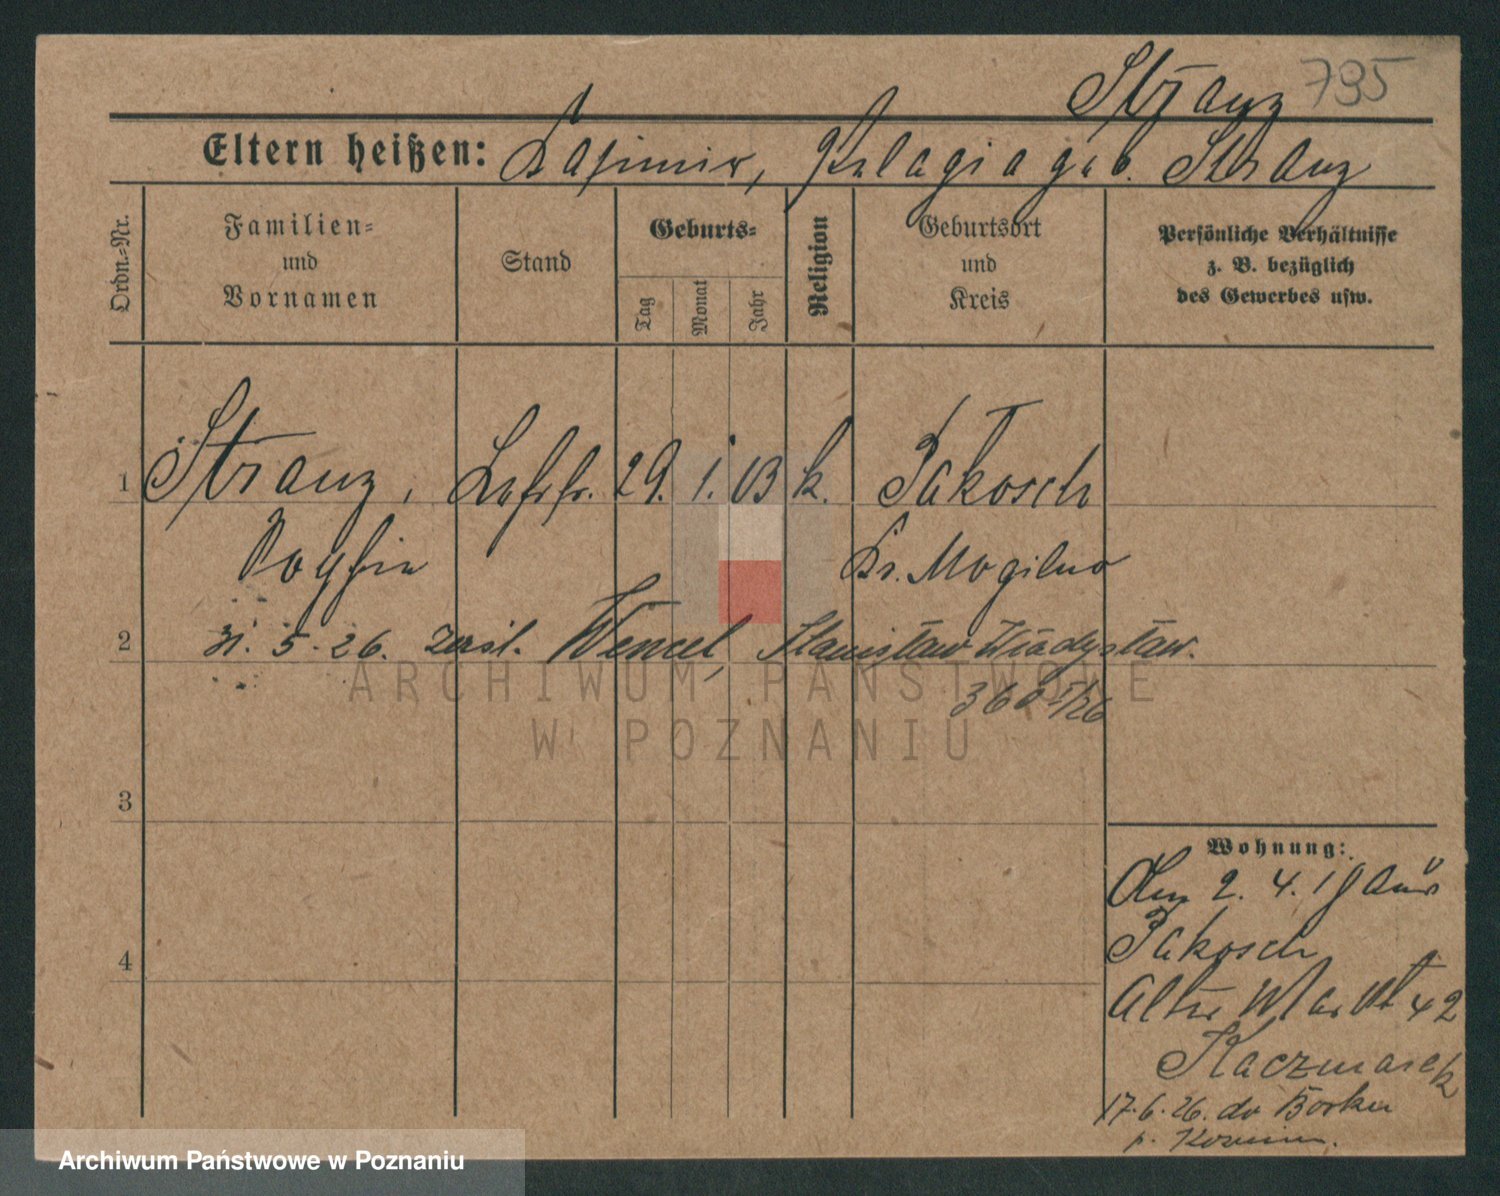 Stranz 795
Eltern heißen: Kasimir, Pelagia geb. Stranz
Ordn.-Nr.
Familien- und Vornamen
Stand
Geburts-
Tag
Monat
Jahr
Religion
Geburtsort und Kreis
Persönliche Verhältnisse z. B. bezüglich des Gewerbes usw.
1 Stranz, 29. 1. 03 k. Pakosch
Sophie Kr. Mogilno
2 31. 5. 26. Wencel, Stanisław Władysław.
360
3
4
Wohnung:
Den 2. 4. 19 aus
Pakosch
Alter Markt 42
Kaczmarek
17. 6. 26. do Borku
p. Koźmin.
ARCHIWUM PAŃSTWOWE
W POZNANIU
Archiwum Państwowe w Poznaniu